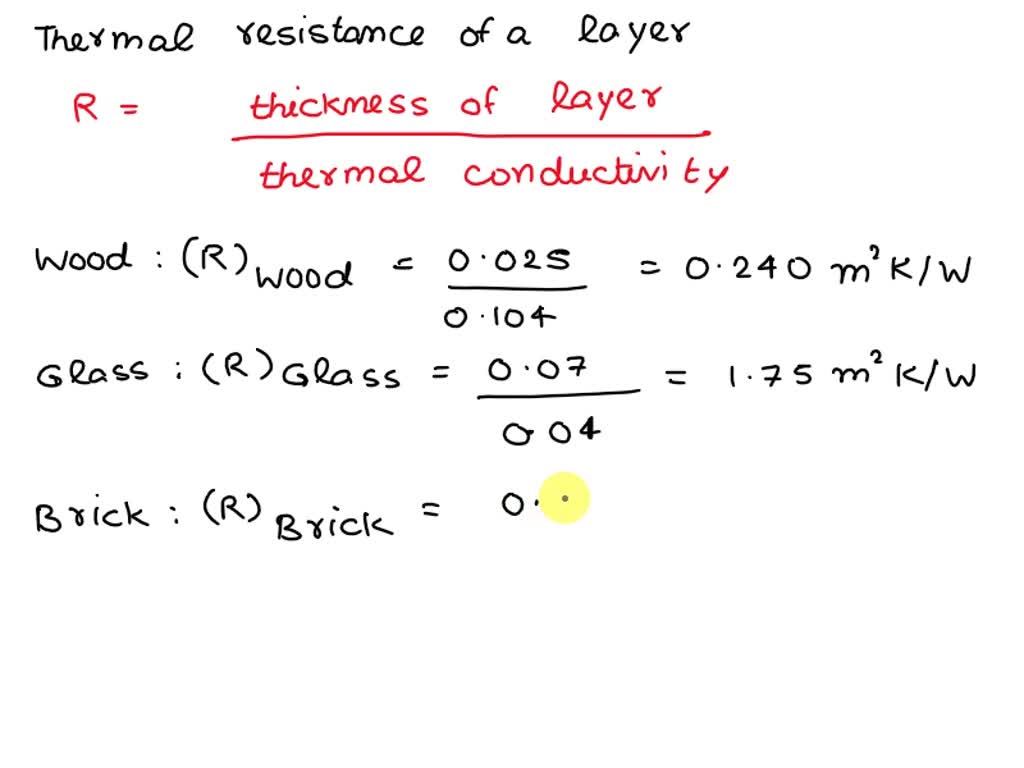 Thermal resistance of a layer
R = thickness of layer
thermal conductivity
Wood : (R) Wood = 0.025 = 0.240 m² K/W
0.104
Glass : (R) Glass = 0.07 = 1.75 m² K/W
0.04
Brick : (R) Brick = 0.